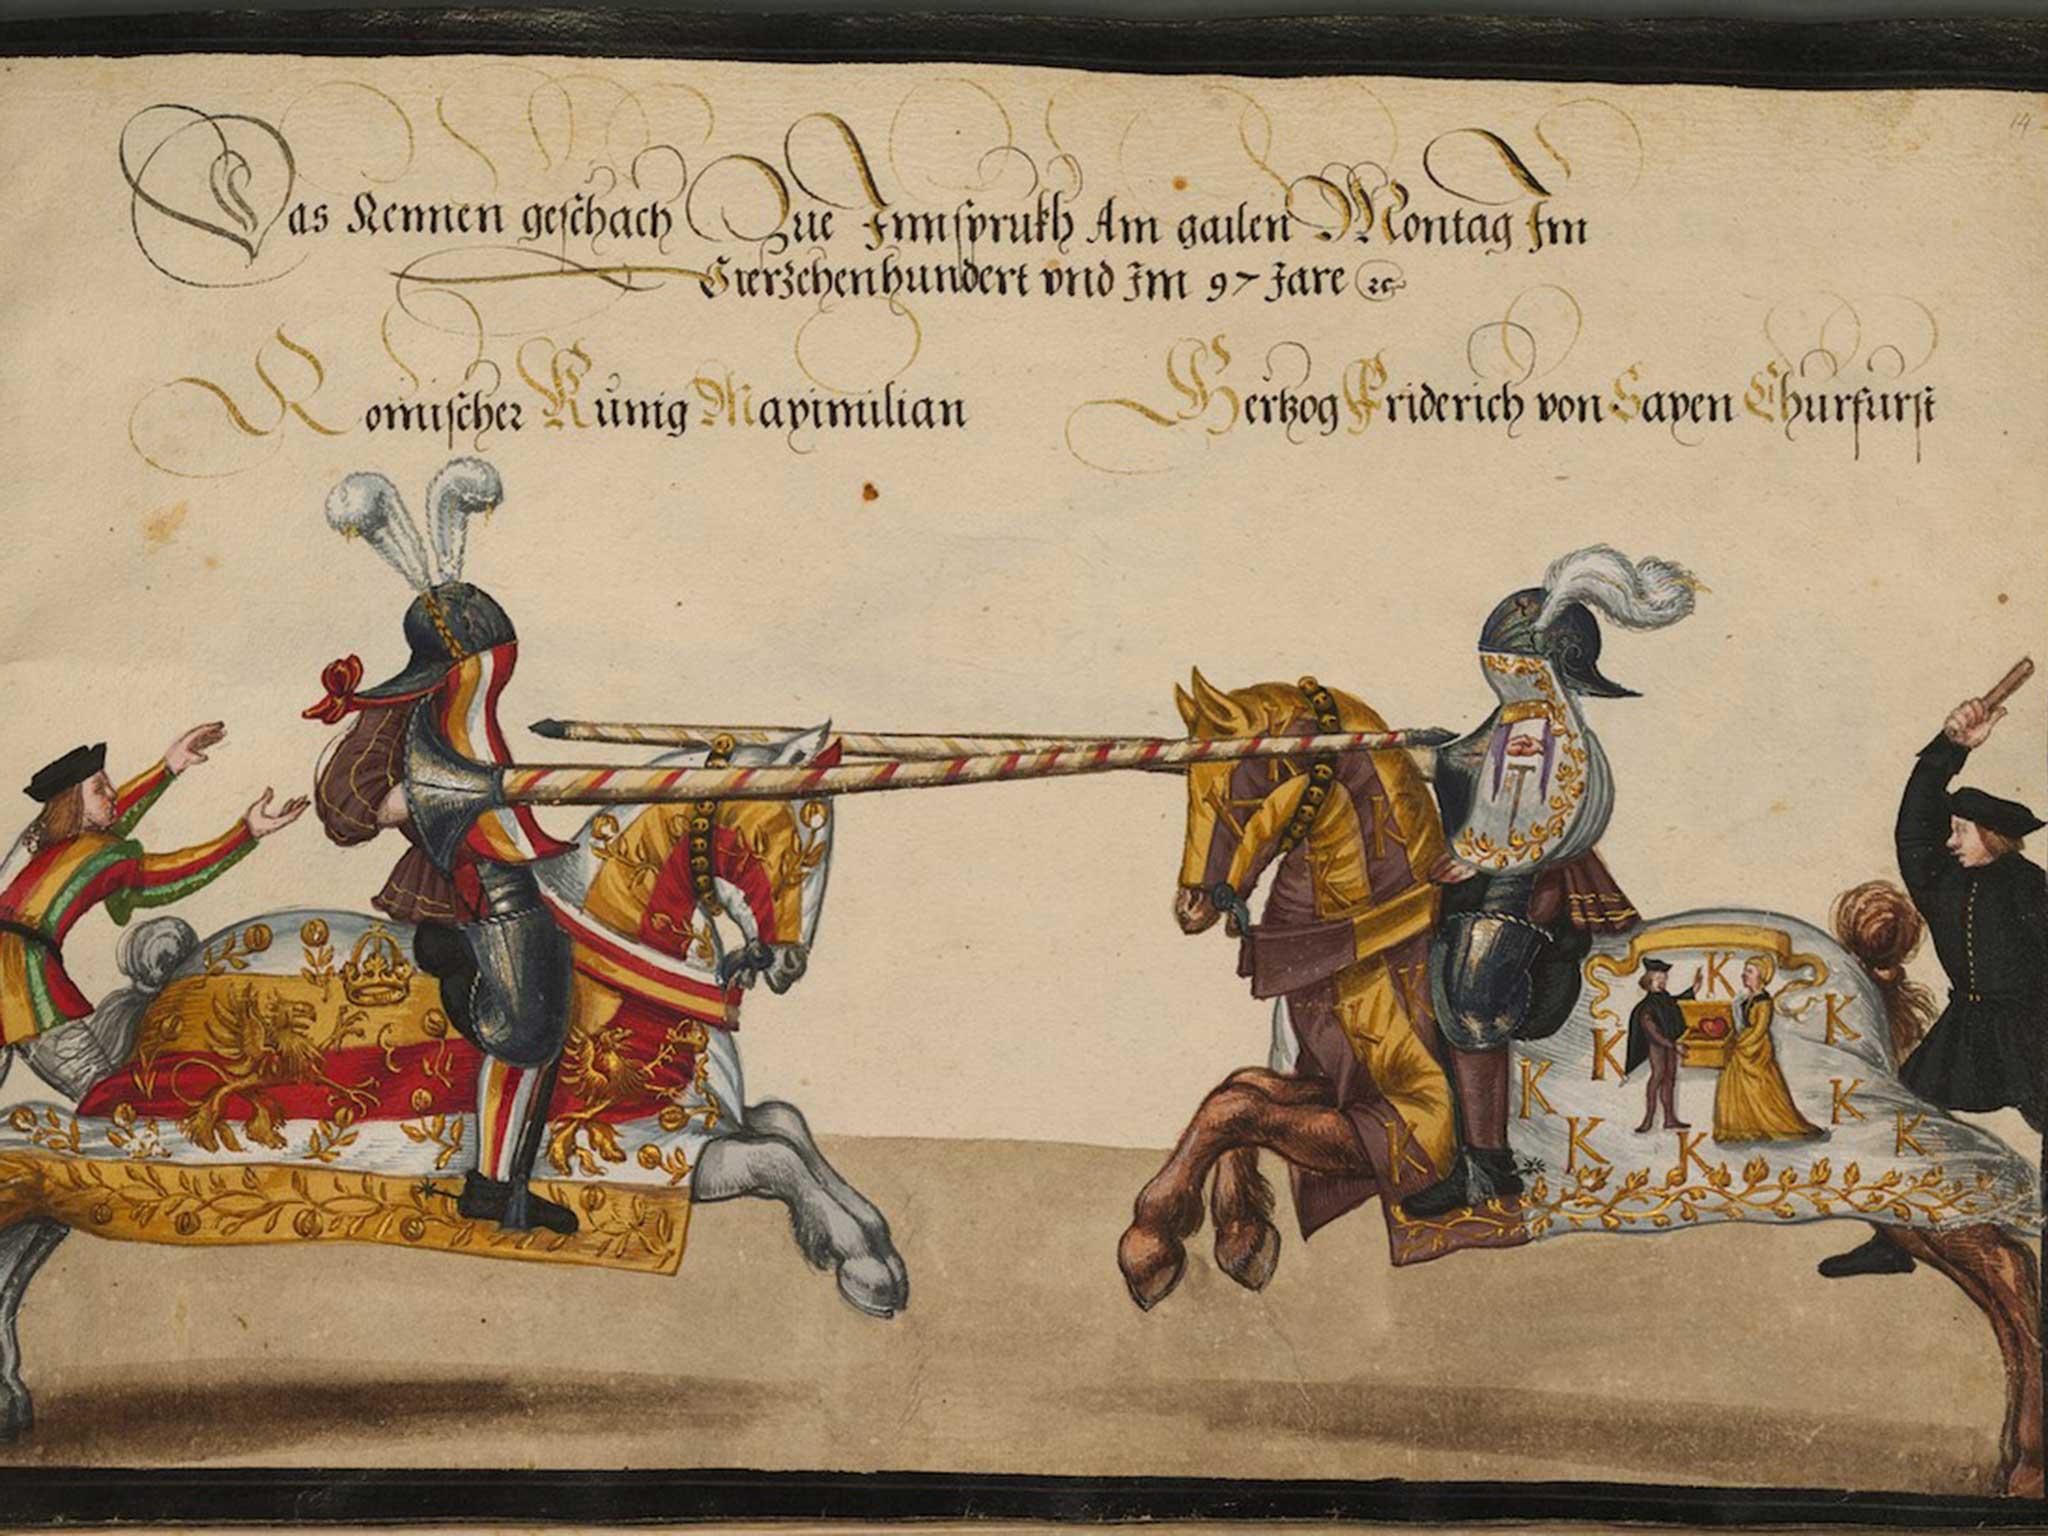 14
Das Rennen geschach Zue Innsprukh Am gailen Montag Im
Vierzehenhundert vnd Im 97 Jare ꝛc
Romischer Kŭnig Maximilian
Hertzog Friderich von Saxen Churfurst
K K K K K K K K K